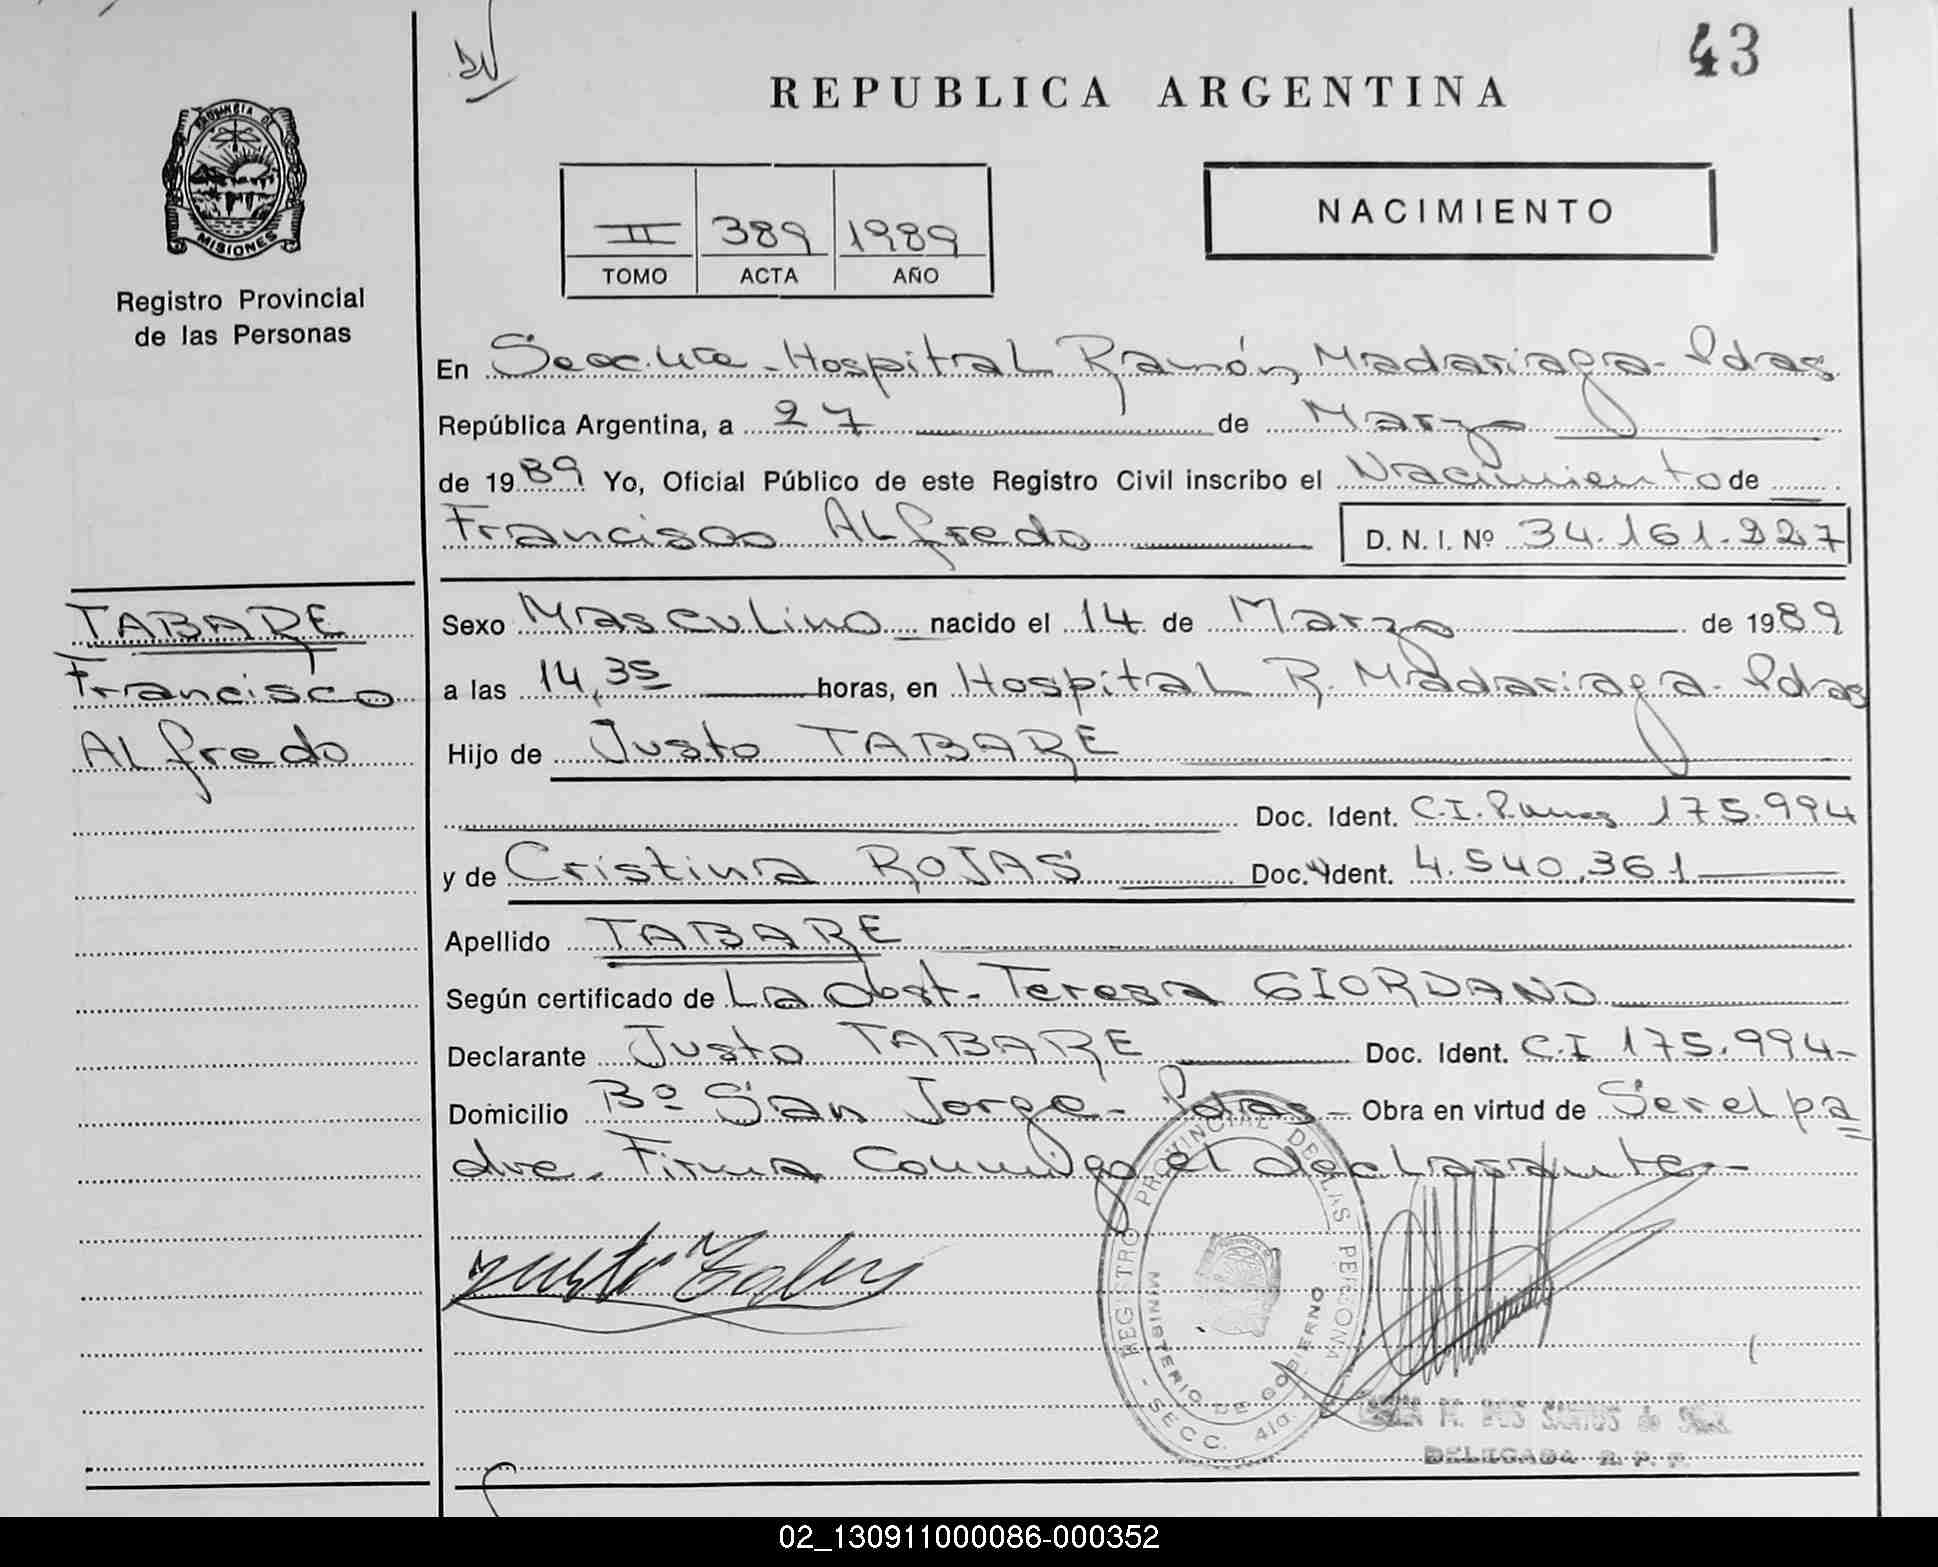 43
REPUBLICA ARGENTINA
PROVINCIA DE
MISIONES
Registro Provincial
de las Personas
NACIMIENTO
II 389 1989
TOMO ACTA AÑO
En Hospital Ramón Madariaga - Pdas
República Argentina, a 27 de Marzo
de 1989 Yo, Oficial Público de este Registro Civil inscribo el Nacimiento de
Francisco Alfredo D. N. I. Nº 34.161.227
TABARE
Francisco
Alfredo
Sexo Masculino nacido el 14 de Marzo de 1989
a las 14,35 horas, en Hospital R. Madariaga - Pdas
Hijo de Justo TABARE
Doc. Ident. C.I. 175.994
y de Cristina ROJAS Doc. Ident. 4.540.361
Apellido TABARE
Según certificado de La obst. Teresa GIORDANO
Declarante Justo TABARE Doc. Ident. C.I 175.994-
Domicilio Bº San Jorge - Pdas - Obra en virtud de Ser el pa
dre. Firma Conmigo el declarante -
REGISTRO PROVINCIAL DE LAS PERSONA
MINISTERIO DE GOBIERNO
- SECC. 41a.
M. DOS SANTOS de
DELEGADA R. P. P.
02_130911000086-000352